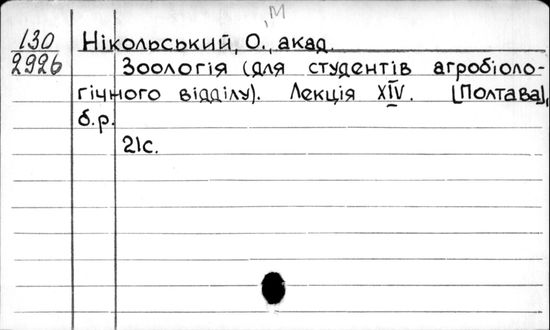 ,М
130 Нікольський, О., акад.
2926 Зоологія (для студентів агробіоло-
гічного відділу). Лекція XIV. [Полтава],
б.р.
21с.